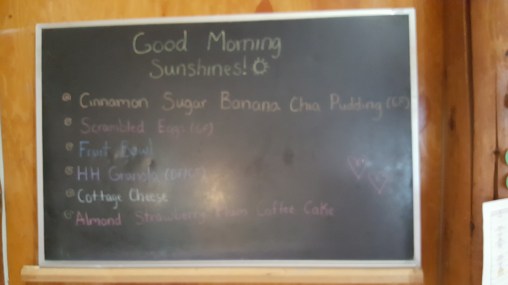 Good Morning
Sunshines!
Cinnamon Sugar Banana Chia Pudding (GF)
Scrambled Eggs (GF)
Fruit Bowl
HH Granola
Cottage Cheese
Almond Strawberry Plum Coffee Cake